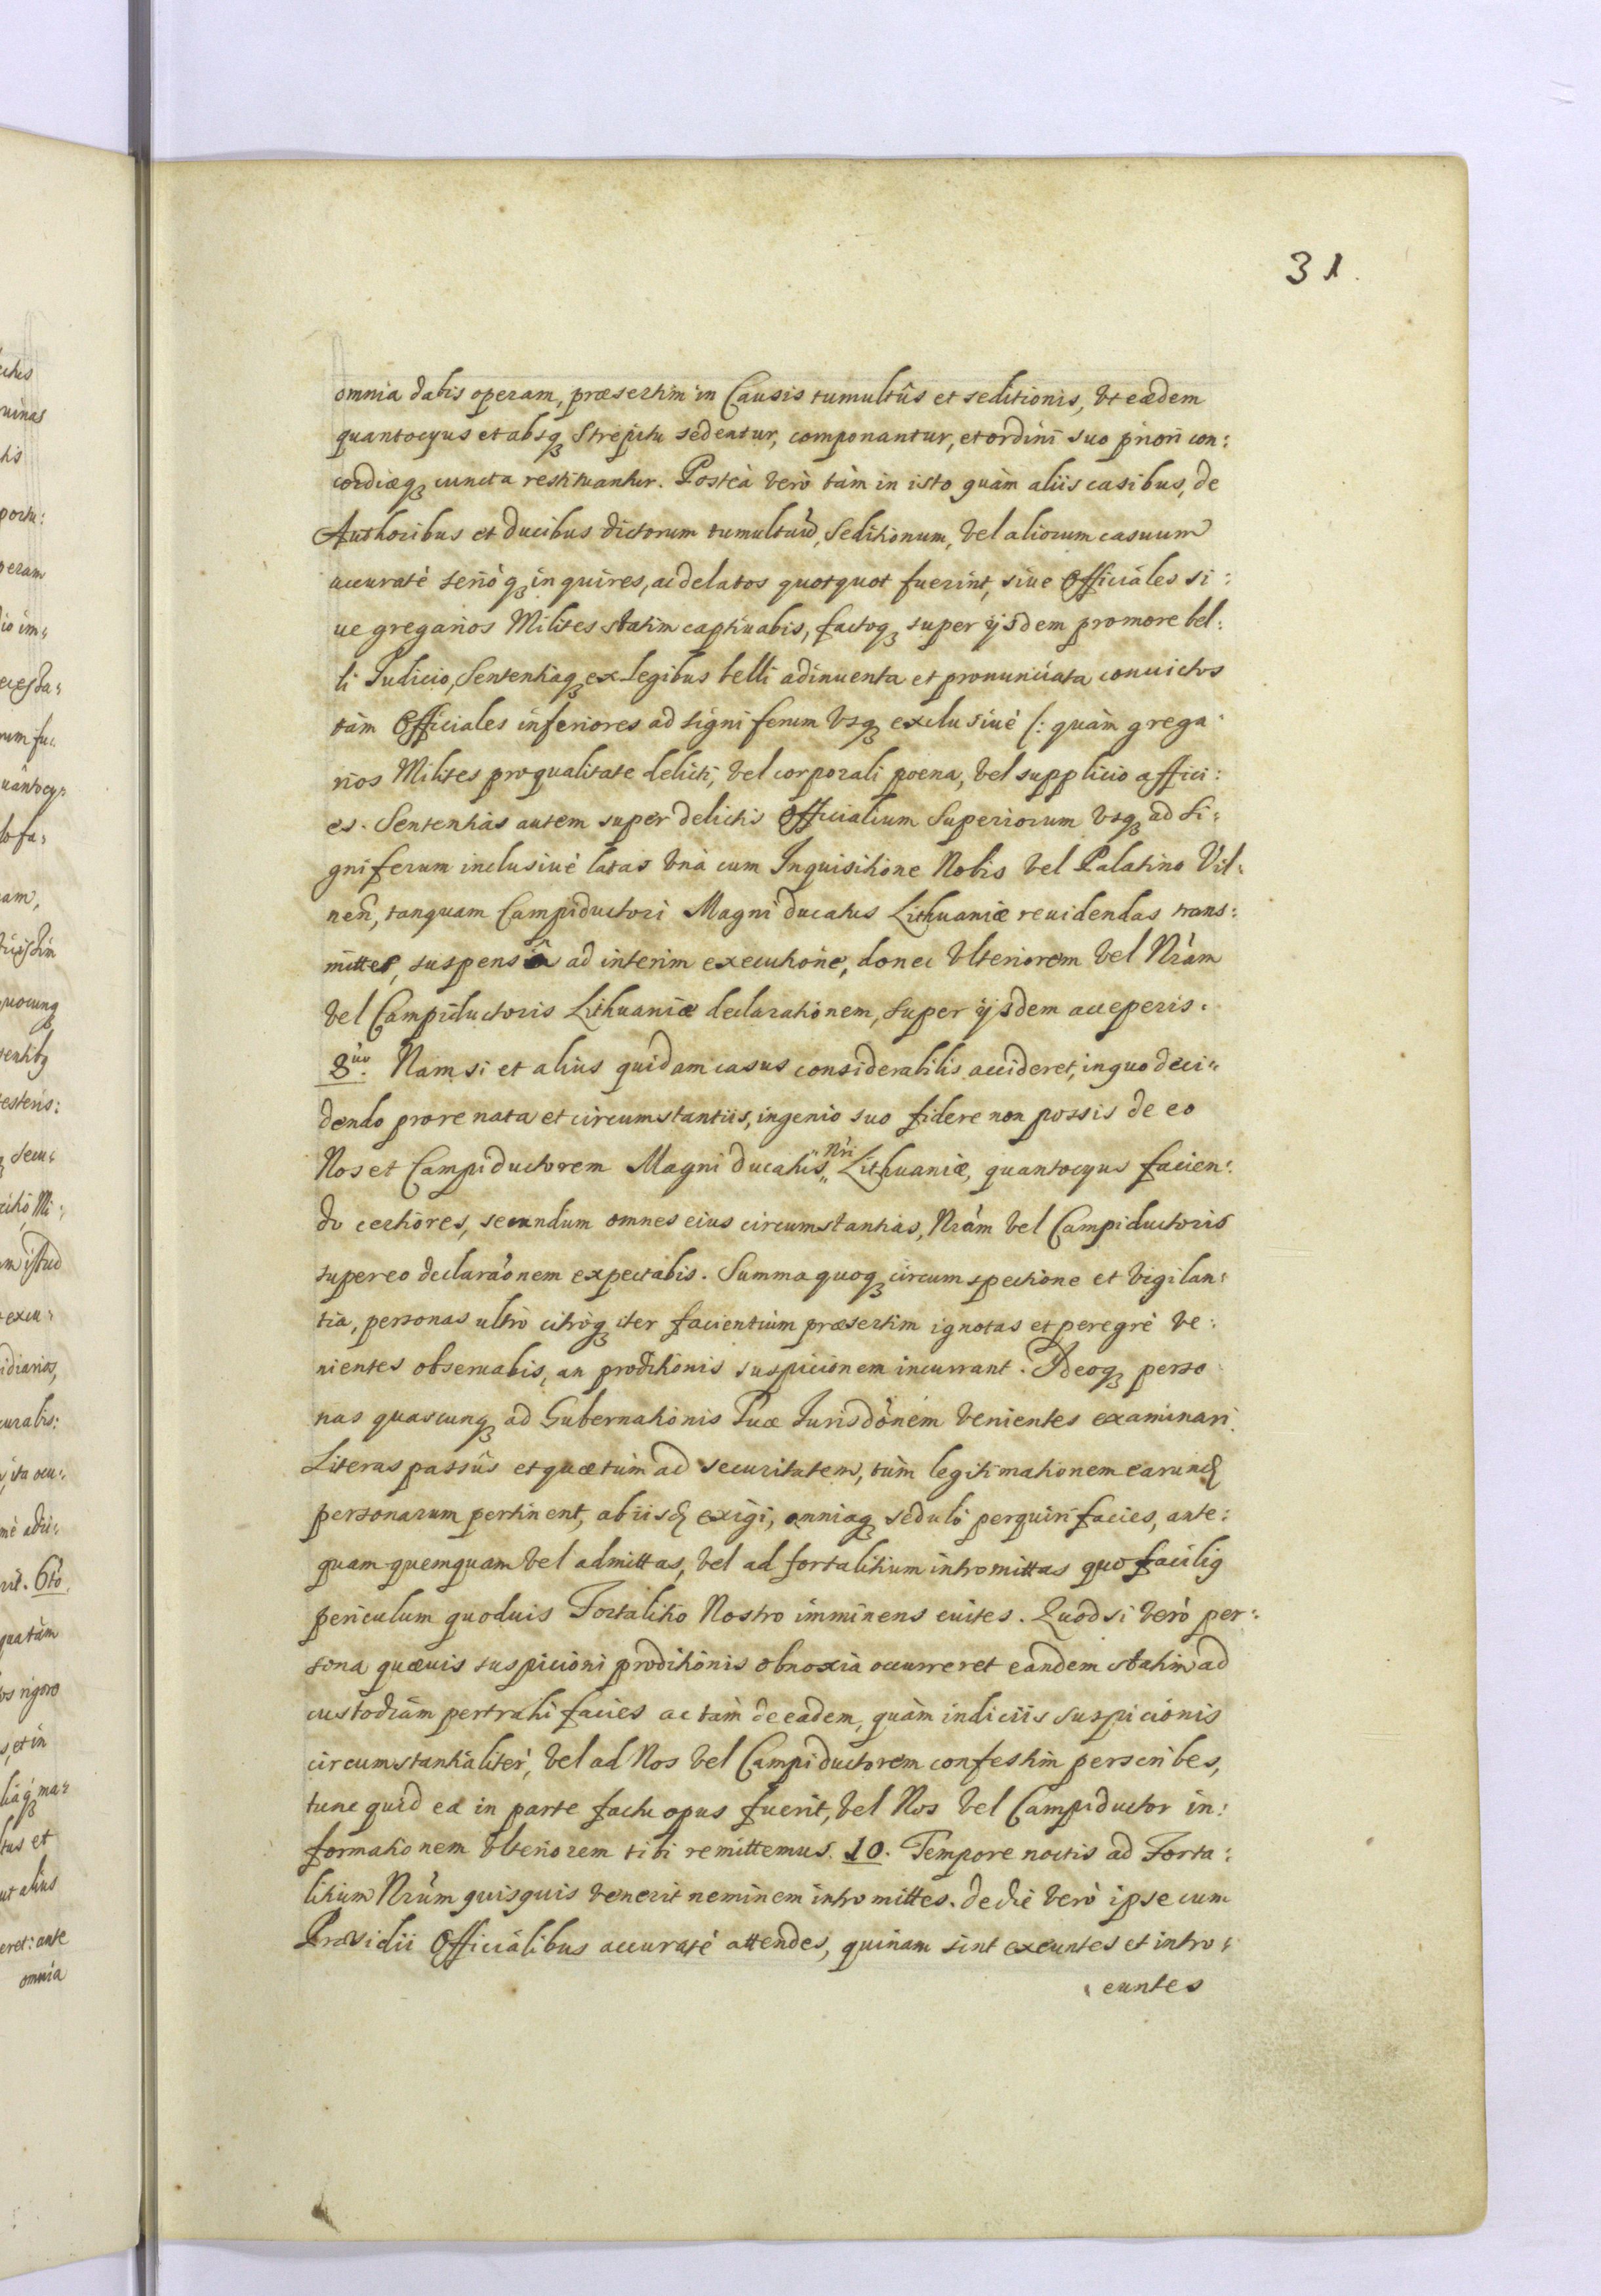 31.
omnia dabis operam, præsertim in Causis tumultûs et seditionis, Vt eædem
quantocyus et absq₃ Strepitu sedentur, componantur, et ordini suo priori con:
cordiæq₃ cuncta restituantur. Posteà verò tàm in isto quàm aliis casibus, de
Authoribus et ducibus dictorum tumultuũ, Seditionum, Vel aliorum casuum
accuratè serióq₃ inquires, ac delatos quotquot fuerint, siue Officiales si:
ue gregarios Milites statim captiuabis, factoq₃ super ijsdem pro more bel:
li Iudicio, Sententiaq₃ ex Legibus belli adinuenta et pronunciata conuictos
tàm Officiales inferiores ad signiferum Vsq₃ exclusiuè /: quàm grega:
rios Milites pro qualitate delicti, Vel corporali poena, Vel supplicio affici:
es. Sententias autem super delictis Officialium Superiorum Vsq₃ ad Si:
gniferum inclusiuè latas Vnà cum Inquisitione Nobis Vel Palatino Vil:
neñ, tanquam Campiductori Magni Ducatus Lithuaniæ reuidendas trans:
mittes, suspensâ ad interim executione, donec Vlteriorem Vel Nrám
Vel Campiductoris Lithuaniæ declarationem, super ijsdem acceperis.
8uo. Nam si et alius quidam casus considerabilis accideret, in quo deci:
dendo pro re nata et circumstantiis, ingenio suo fidere non possis de eo
Nos et Campiductorem Magni Ducatûs Nri Lithuaniæ, quantocyus facien:
do certiores, secundum omnes eius circumstantias, Nrám Vel Campiductoris
super eo declaraõnem expectabis. Summa quoq₃ circumspectione et Vigilan:
tia, personas ultrò citròq₃ iter facientium præsertim ignotas et peregrè Ve:
nientes obseruabis, an proditionis suspicionem incurrant. Ideoq₃ perso
nas quascunq₃ ad Gubernationis Tuæ Iurisdõnem Venientes examinari
Literas passûs et quæ tùm ad securitatem, tùm legitimationem earund
personarum pertinent, ab iisd exigi, omniaq₃ sedulò perquiri facies, ante:
quam quemquam Vel admittas, Vel ad fortalitium intromittas quo facilig
periculum quoduis Fortalitio Nostro imminens euites. Quod si Verò per:
sona quæuis suspicioni proditionis obnoxia occurreret eandem statim ad
custodiam pertrahi facies ac tàm de eadem, quàm indiciis suspicionis
circumstantialiter, Vel ad Nos Vel Campiductorem confestim perscribes,
tunc quid ea in parte factu opus fuerit, Vel Nos Vel Campiductor in:
formationem Vlteriorem tibi remittemus. 10. Tempore noctis ad Forta:
litium Nrúm quisquis Venerit neminem intromittes. de die Verò ipse cum
Præsidii Officialibus accuratè attendes, quinam sint exeuntes et intro:
euntes